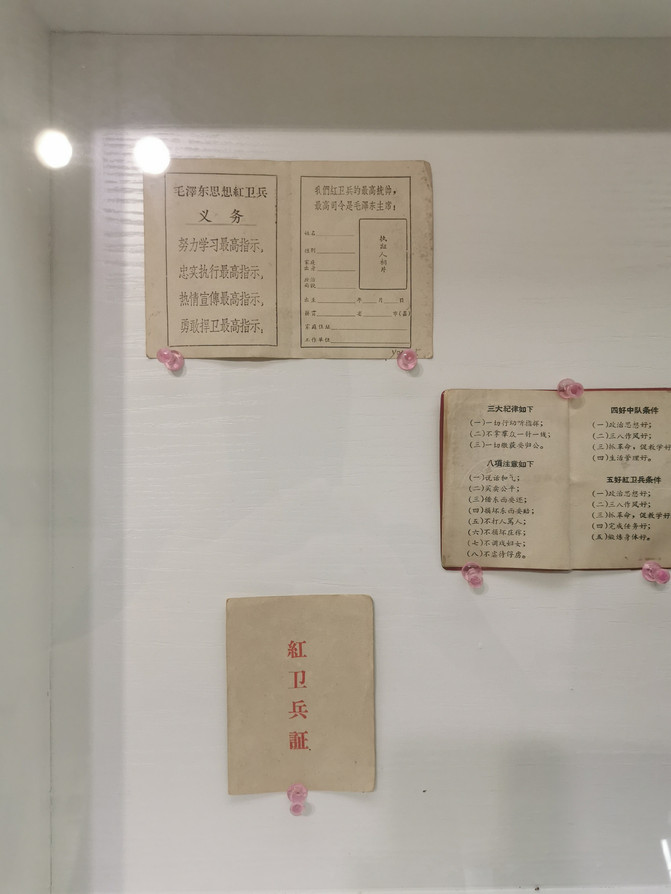 毛澤东思想紅卫兵
义务
努力学习最高指示,
忠实执行最高指示,
热情宣傳最高指示,
勇敢捍卫最高指示;
我們紅卫兵的最高統帥,
最高司令是毛澤东主席;
姓名
性別
家庭
出身
政治
面貌
执証人相片
出生 年 月 日
籍貫 省 市(县)
家庭住址
工作单位
三大紀律如下
(一)一切行动听指揮;
(二)不拿羣众一针一线;
(三)一切缴获要归公。
八項注意如下
(一)说话和气;
(二)买卖公平;
(三)借东西要还;
(四)損坏东西要赔;
(五)不打人罵人;
(六)不損坏庄稼;
(七)不调戏妇女;
(八)不虐待俘虏。
四好中队条件
(一)政治思想好;
(二)三八作风好;
(三)抓革命,促教学好
(四)生活管理好。
五好紅卫兵条件
(一)政治思想好;
(二)三八作风好;
(三)抓革命,促教学好
(四)完成任务好;
(五)鍛炼身体好。
紅卫兵証